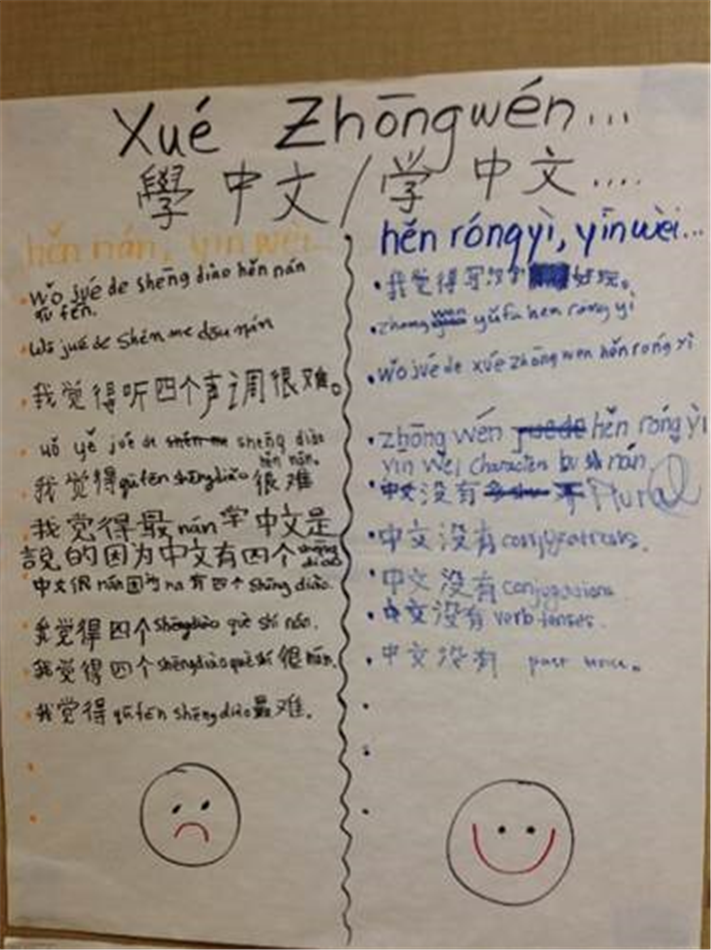 Xué Zhōngwén...
學中文/学中文....
hěn nán, yīn wèi...
wǒ jué de shēng diào hěn nán
qū fēn.
Wǒ jué de shén me dōu nán
我觉得听四个声调很难。
wǒ yě jué de shēng diào
hěn nán.
我觉得qūfēn shēngdiào 很难
我觉得最nán学中文是
說的因为中文有四个shēng
diào
中文很nán因为 有四个shēng diào.
我觉得四个shēngdiào què shí nán.
我觉得四个shēngdiào què shí 很nán.
我觉得qūfēn shēngdiào最难。
hěn róngyì, yīn wèi...
我觉得写汉字好玩。
zhong wen yǔfǎ hen róng yì
wǒ jué de xué zhōng wen hěn róng yì
zhōng wén hěn róng yì
yīn wèi characters nán
中文没有 Plural
中文没有conjugations.
中文没有conjugations
中文没有verb tenses.
中文没有 past tense.